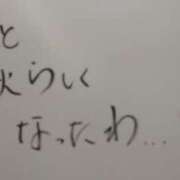 と
らしく
なったわ...